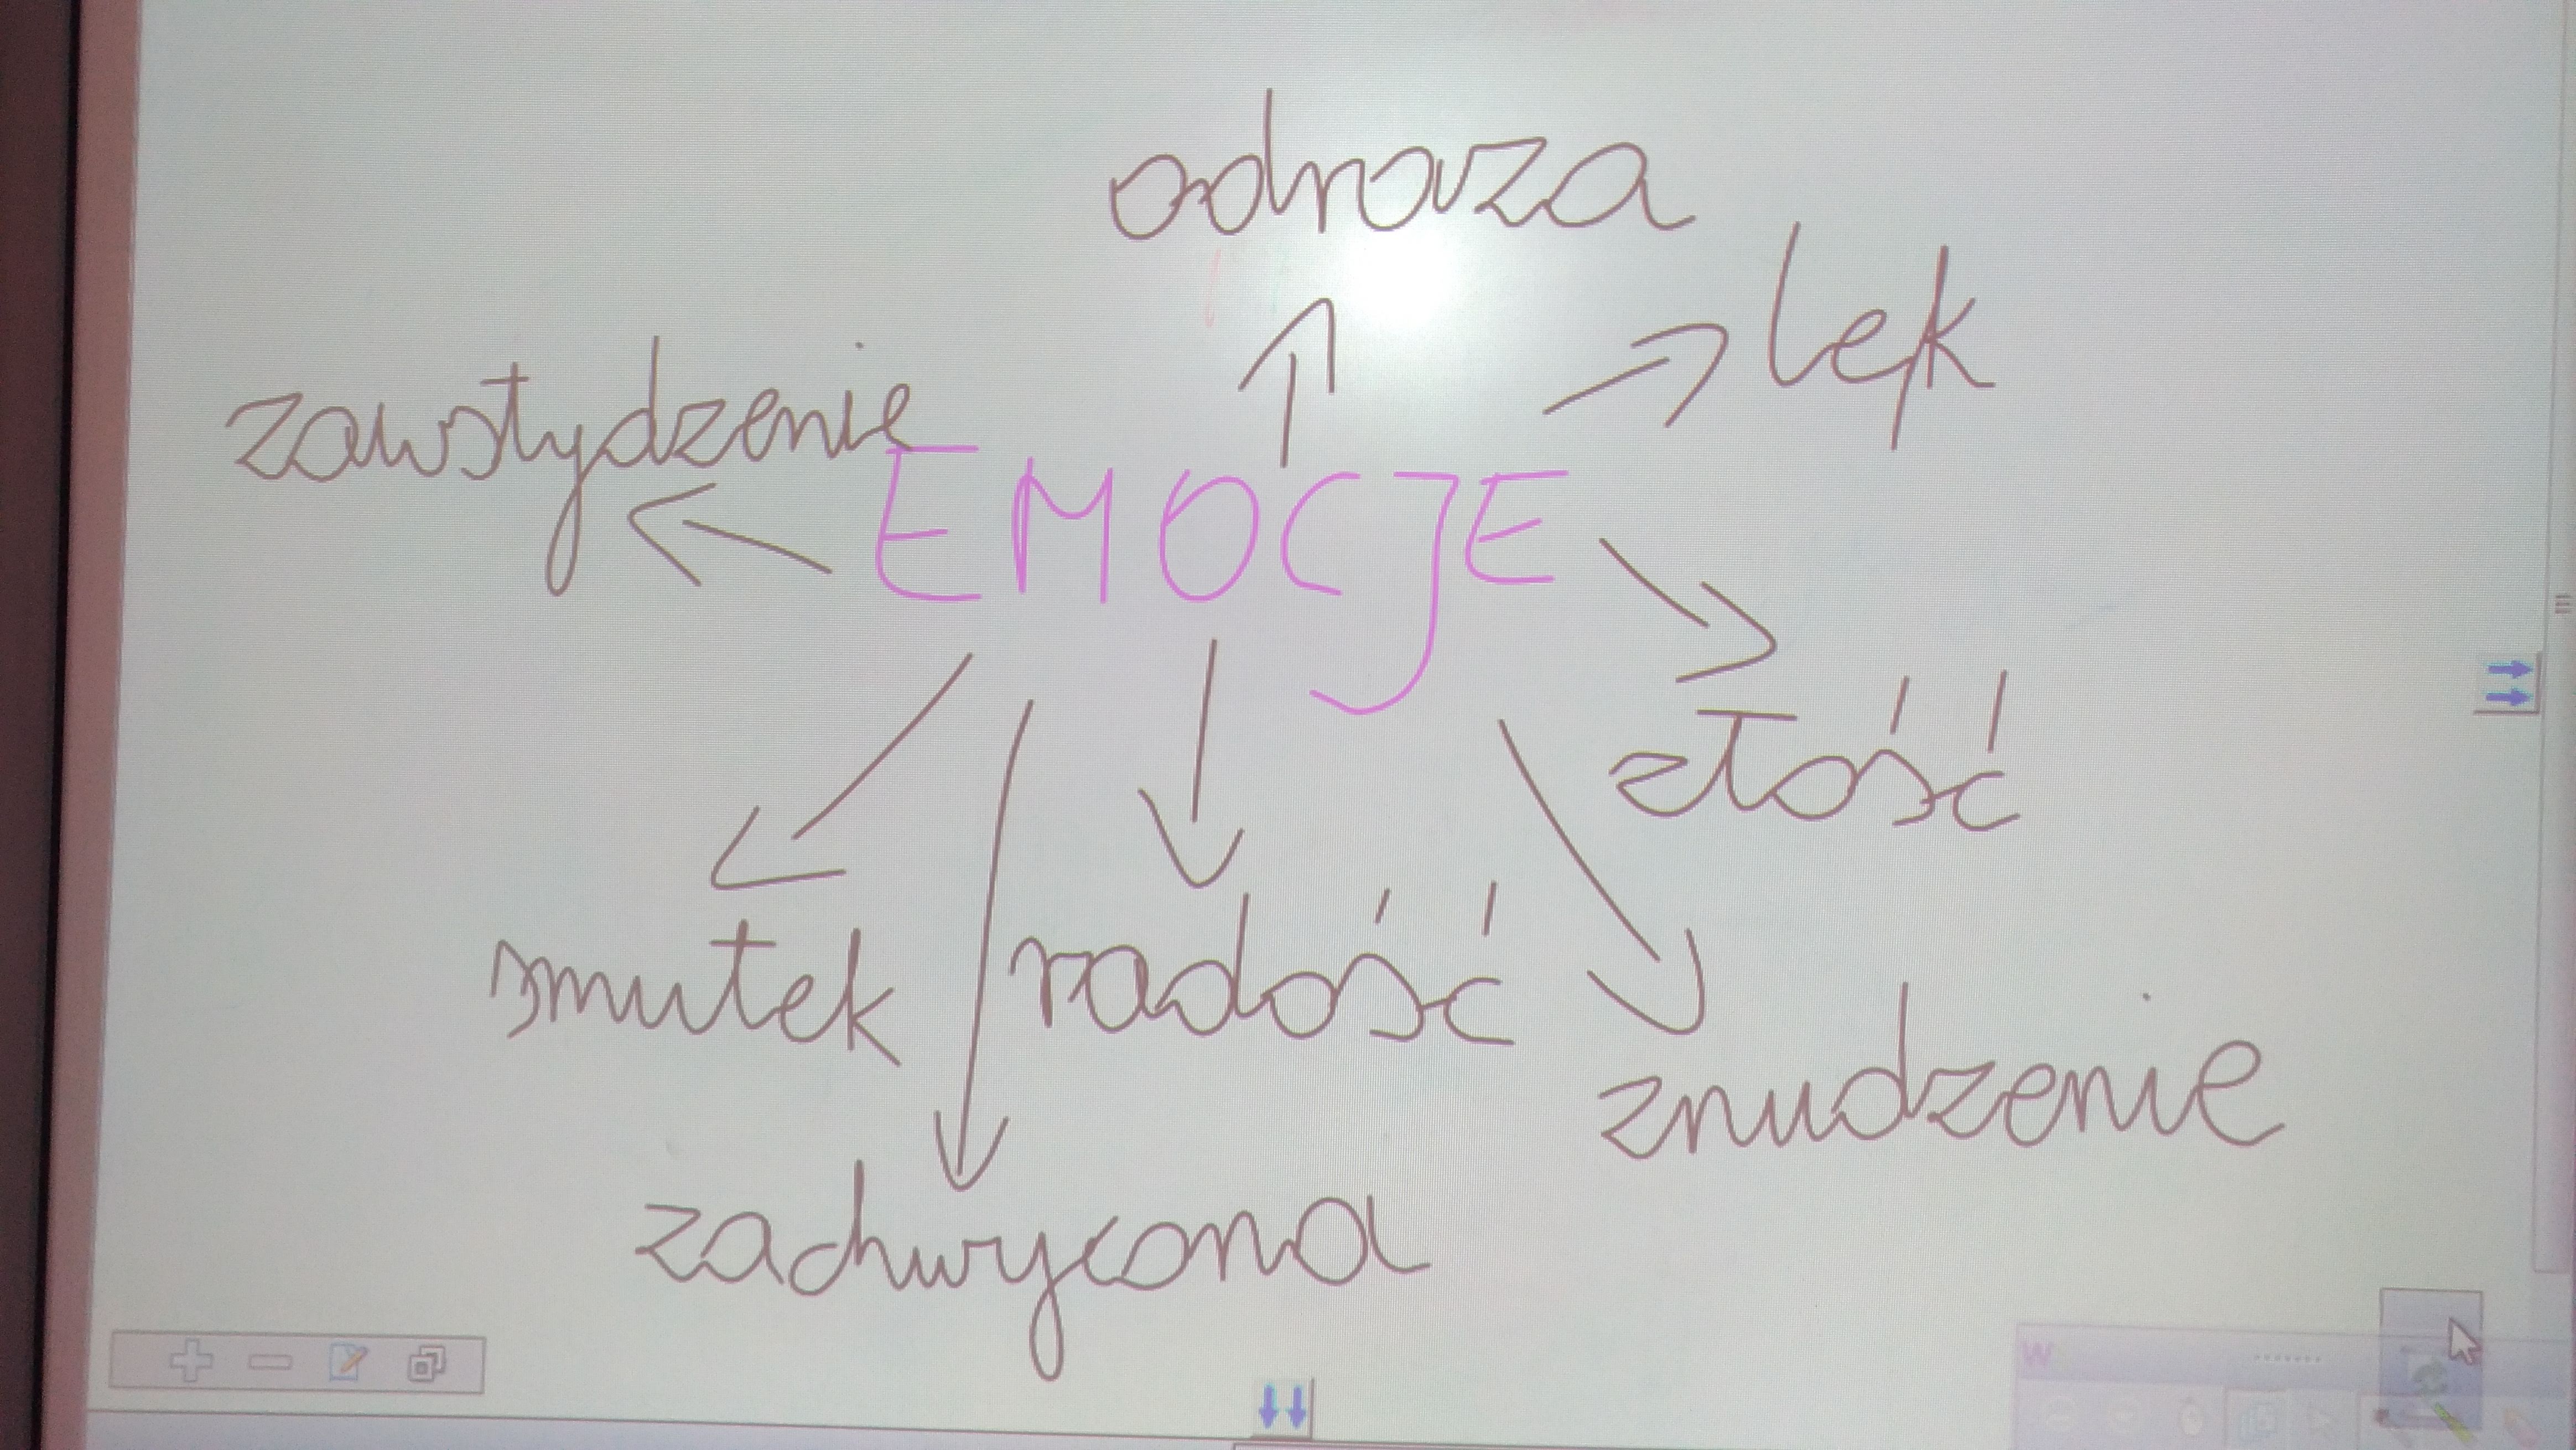 odraza
lęk
zawstydzenie
EMOCJE
złość
smutek
radość
znudzenie
zachwycona
W